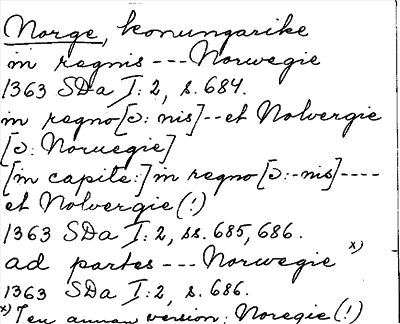 Norge, konungarike
in regnis --- Norwegie
1363 SDa I: 2, s. 684.
in regno [ɔ: nis] -- et Nolvergie
[ɔ: Noruegie]
[in capite:] in regno [ɔ: -nis] ----
et Nolvergie (!)
1363 SDa I: 2, ss. 685, 686.
ad partes --- Norwegie x)
1363 SDa I: 2, s. 686.
x) I en annan version: Noregie (!)